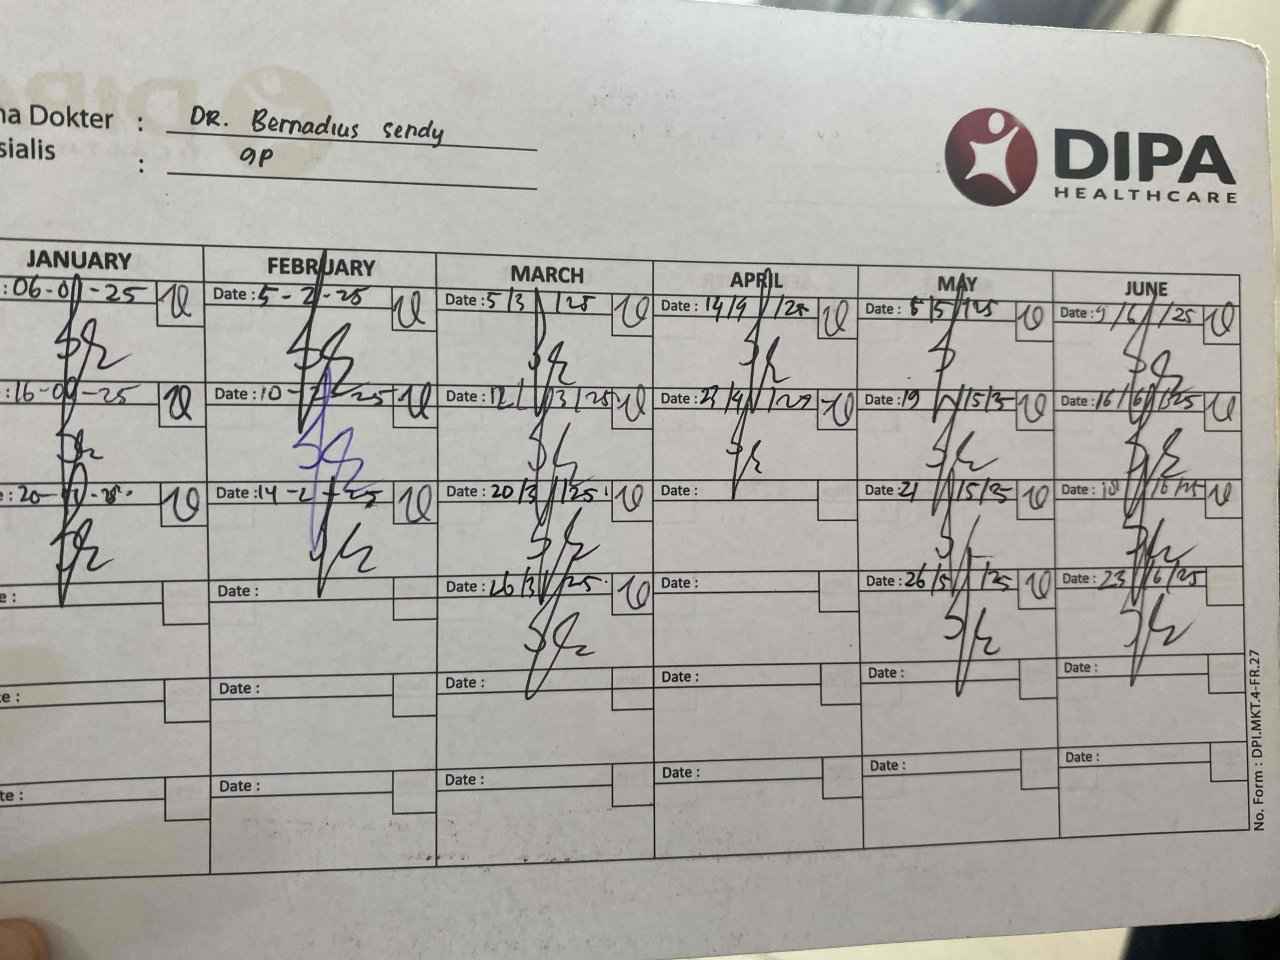 na Dokter : DR. Bernadius sendy
sialis : GP
DIPA
HEALTHCARE
JANUARY FEBRUARY MARCH APRIL MAY JUNE
: 06-01-25 Date : 5-2-25 Date : 5/3/25 Date : 14/4/25 Date : 5/5/25 Date : 9/6/25
: 16-01-25 Date : 10-2-25 Date : 12/3/25 Date : Date : 19 Date : 16/6/25
e : 20- Date : 14-2-25 Date : 20/3/25 Date : Date : 21 Date :
e : Date : Date : 26/3/25 Date : Date : 26/5/25 Date : 23/6/25
te : Date : Date : Date : Date : Date :
te : Date : Date : Date : Date : Date :
No. Form : DPI.MKT.4-FR.27